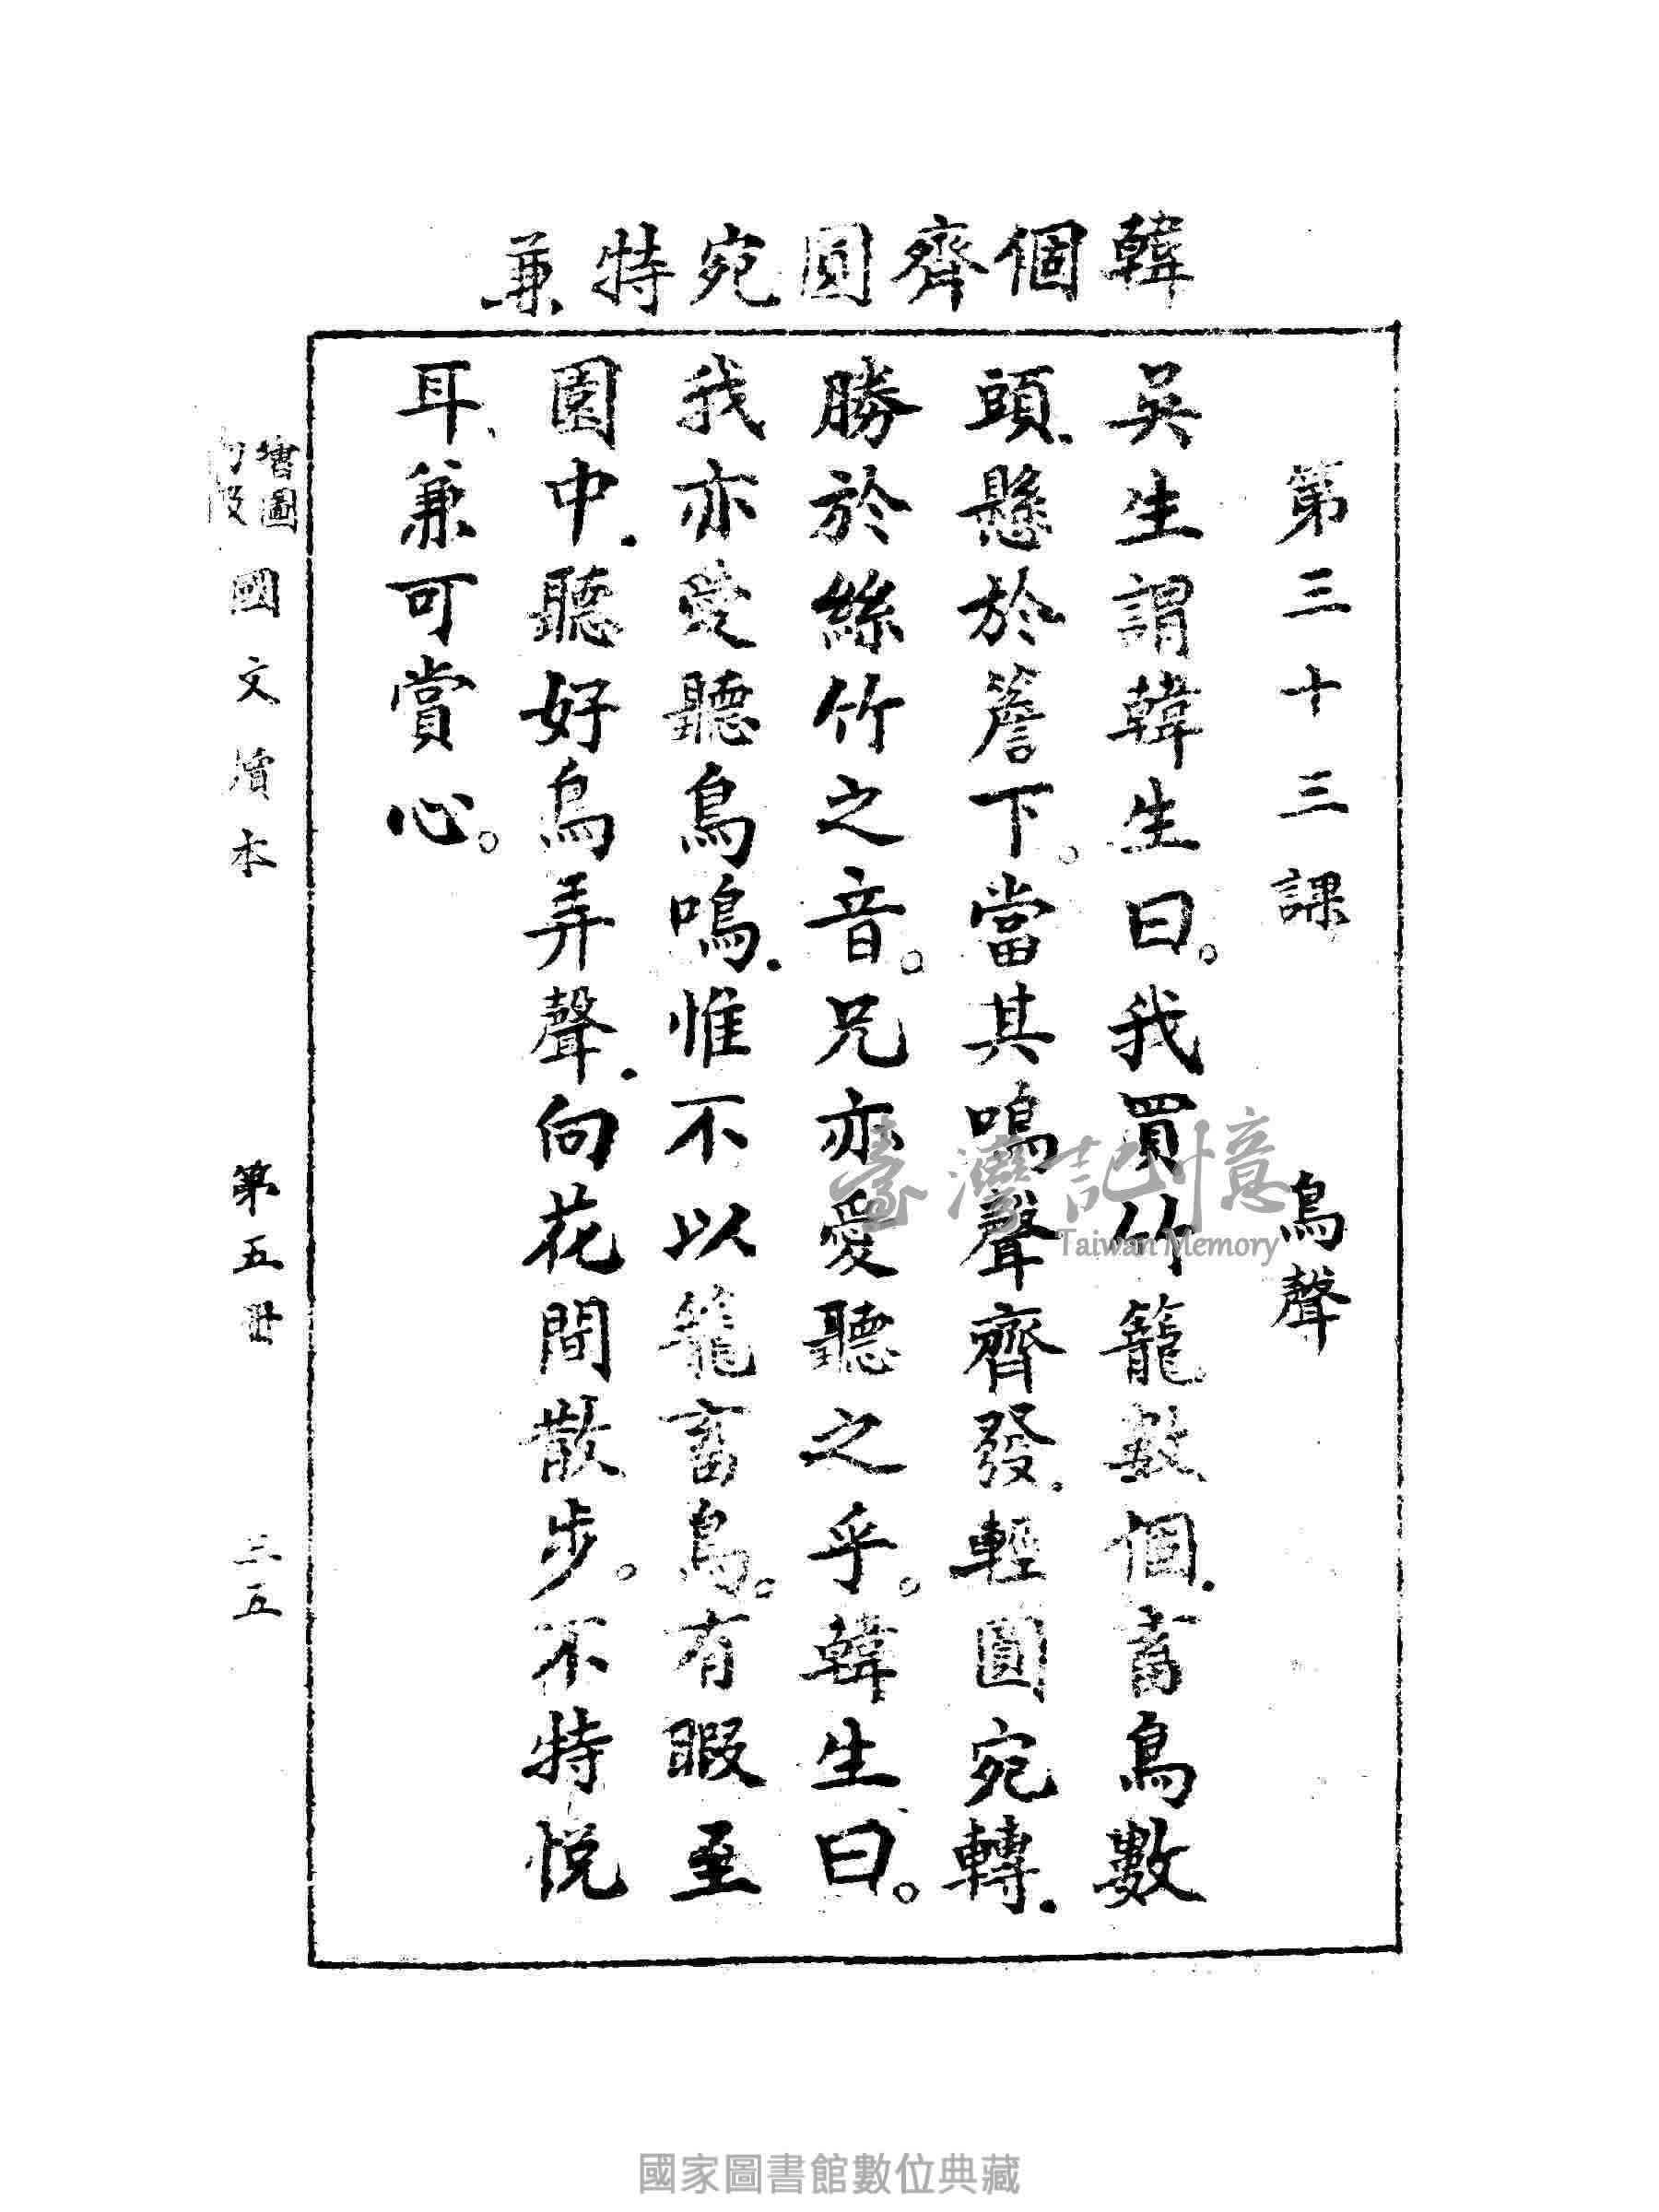 韓個齊圓宛特兼
第三十三課　鳥聲
吳生謂韓生曰。我買竹籠數個.畜鳥數
頭.懸於簷下。當其鳴聲齊發.輕圓宛轉.
勝於絲竹之音。兄亦愛聽之乎。韓生曰。
我亦愛聽鳥鳴.惟不以籠畜鳥。有暇至
園中.聽好鳥弄聲.向花間散步。不特悅
耳、兼可賞心。
增圖
國文讀本　第五冊　三五
臺灣記憶
Taiwan Memory
國家圖書館數位典藏